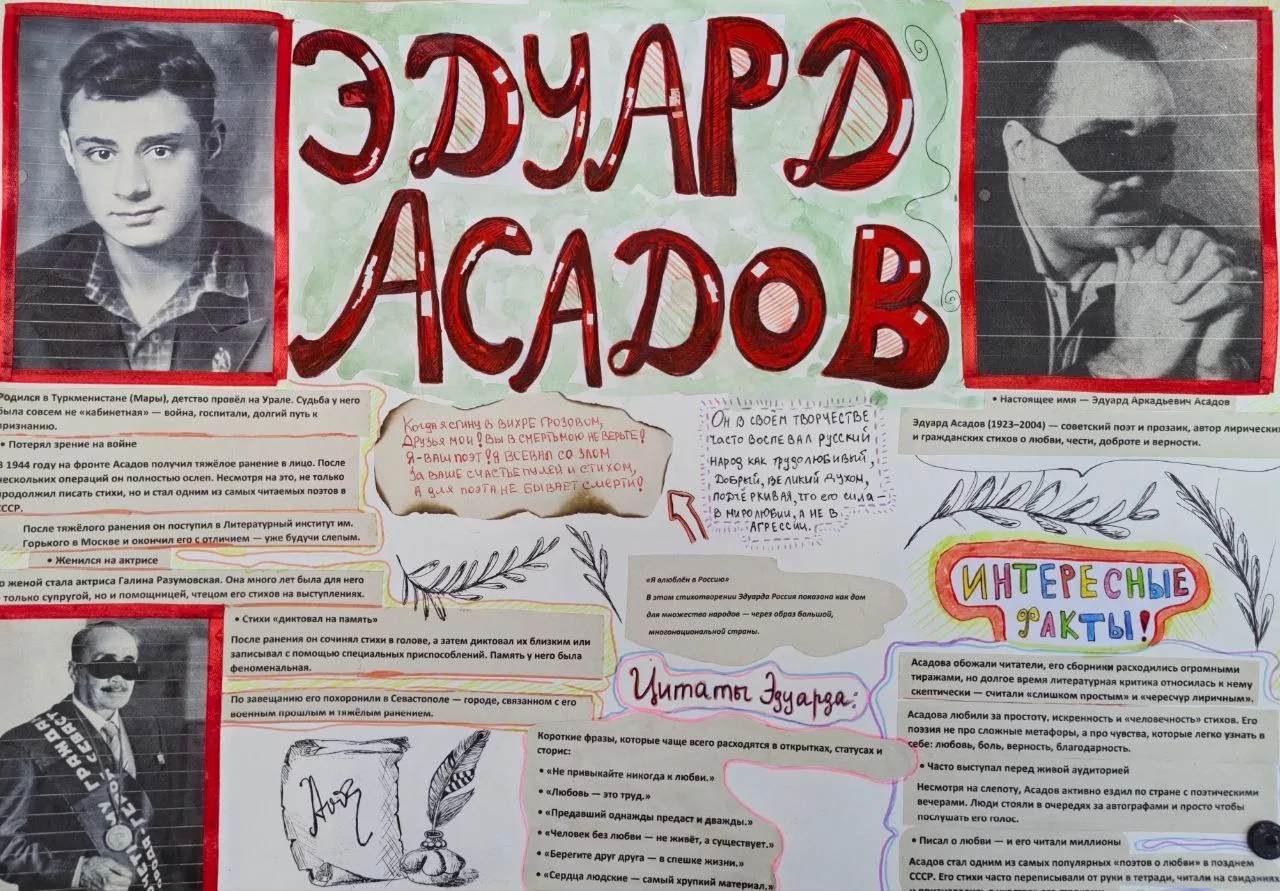 ЭДУАРД
АСАДОВ
Родился в Туркменистане (Мары), детство провёл на Урале. Судьба у него
была совсем не «кабинетная» — война, госпитали, долгий путь к
признанию.
• Потерял зрение на войне
В 1944 году на фронте Асадов получил тяжёлое ранение в лицо. После
нескольких операций он полностью ослеп. Несмотря на это, не только
продолжил писать стихи, но и стал одним из самых читаемых поэтов в
СССР.
После тяжёлого ранения он поступил в Литературный институт им.
Горького в Москве и окончил его с отличием — уже будучи слепым.
• Женился на актрисе
женой стала актриса Галина Разумовская. Она много лет была для него
только супругой, но и помощницей, чтецом его стихов на выступлениях.
• Стихи «диктовал на память»
После ранения он сочинял стихи в голове, а затем диктовал их близким или
записывал с помощью специальных приспособлений. Память у него была
феноменальная.
По завещанию его похоронили в Севастополе — городе, связанном с его
военным прошлым и тяжёлым ранением.
Когда я сгину в вихре грозовом,
Друзья мои! Вы в смерть мою не верьте!
Я – ваш поэт! Я воевал со злом
За ваше счастье пулей и стихом,
А для поэта не бывает смерти!
Он в своём творчестве
часто воспевал русский
народ как трудолюбивый,
добрый, великий духом,
подчёркивая, что его сила –
в миролюбии, а не в
агрессии.
«Я влюблён в Россию»
В этом стихотворении Эдуарда Россия показана как дом
для множества народов — через образ большой,
многонациональной страны.
Цитаты Эдуарда:
Короткие фразы, которые чаще всего расходятся в открытках, статусах и
сторис:
• «Не привыкайте никогда к любви.»
• «Любовь — это труд.»
• «Предавший однажды предаст и дважды.»
• «Человек без любви — не живёт, а существует.»
• «Берегите друг друга — в спешке жизни.»
• «Сердца людские — самый хрупкий материал.»
• Настоящее имя — Эдуард Аркадьевич Асадов
Эдуард Асадов (1923–2004) — советский поэт и прозаик, автор лирических
и гражданских стихов о любви, чести, доброте и верности.
ИНТЕРЕСНЫЕ
ФАКТЫ!
Асадова обожали читатели, его сборники расходились огромными
тиражами, но долгое время литературная критика относилась к нему
скептически — считали «слишком простым» и «чересчур лиричным».
Асадова любили за простоту, искренность и «человечность» стихов. Его
поэзия не про сложные метафоры, а про чувства, которые легко узнать в
себе: любовь, боль, верность, благодарность.
• Часто выступал перед живой аудиторией
Несмотря на слепоту, Асадов активно ездил по стране с поэтическими
вечерами. Люди стояли в очередях за автографами и просто чтобы
послушать его голос.
• Писал о любви — и его читали миллионы
Асадов стал одним из самых популярных «поэтов о любви» в позднем
СССР. Его стихи часто переписывали от руки в тетради, читали на свиданиях